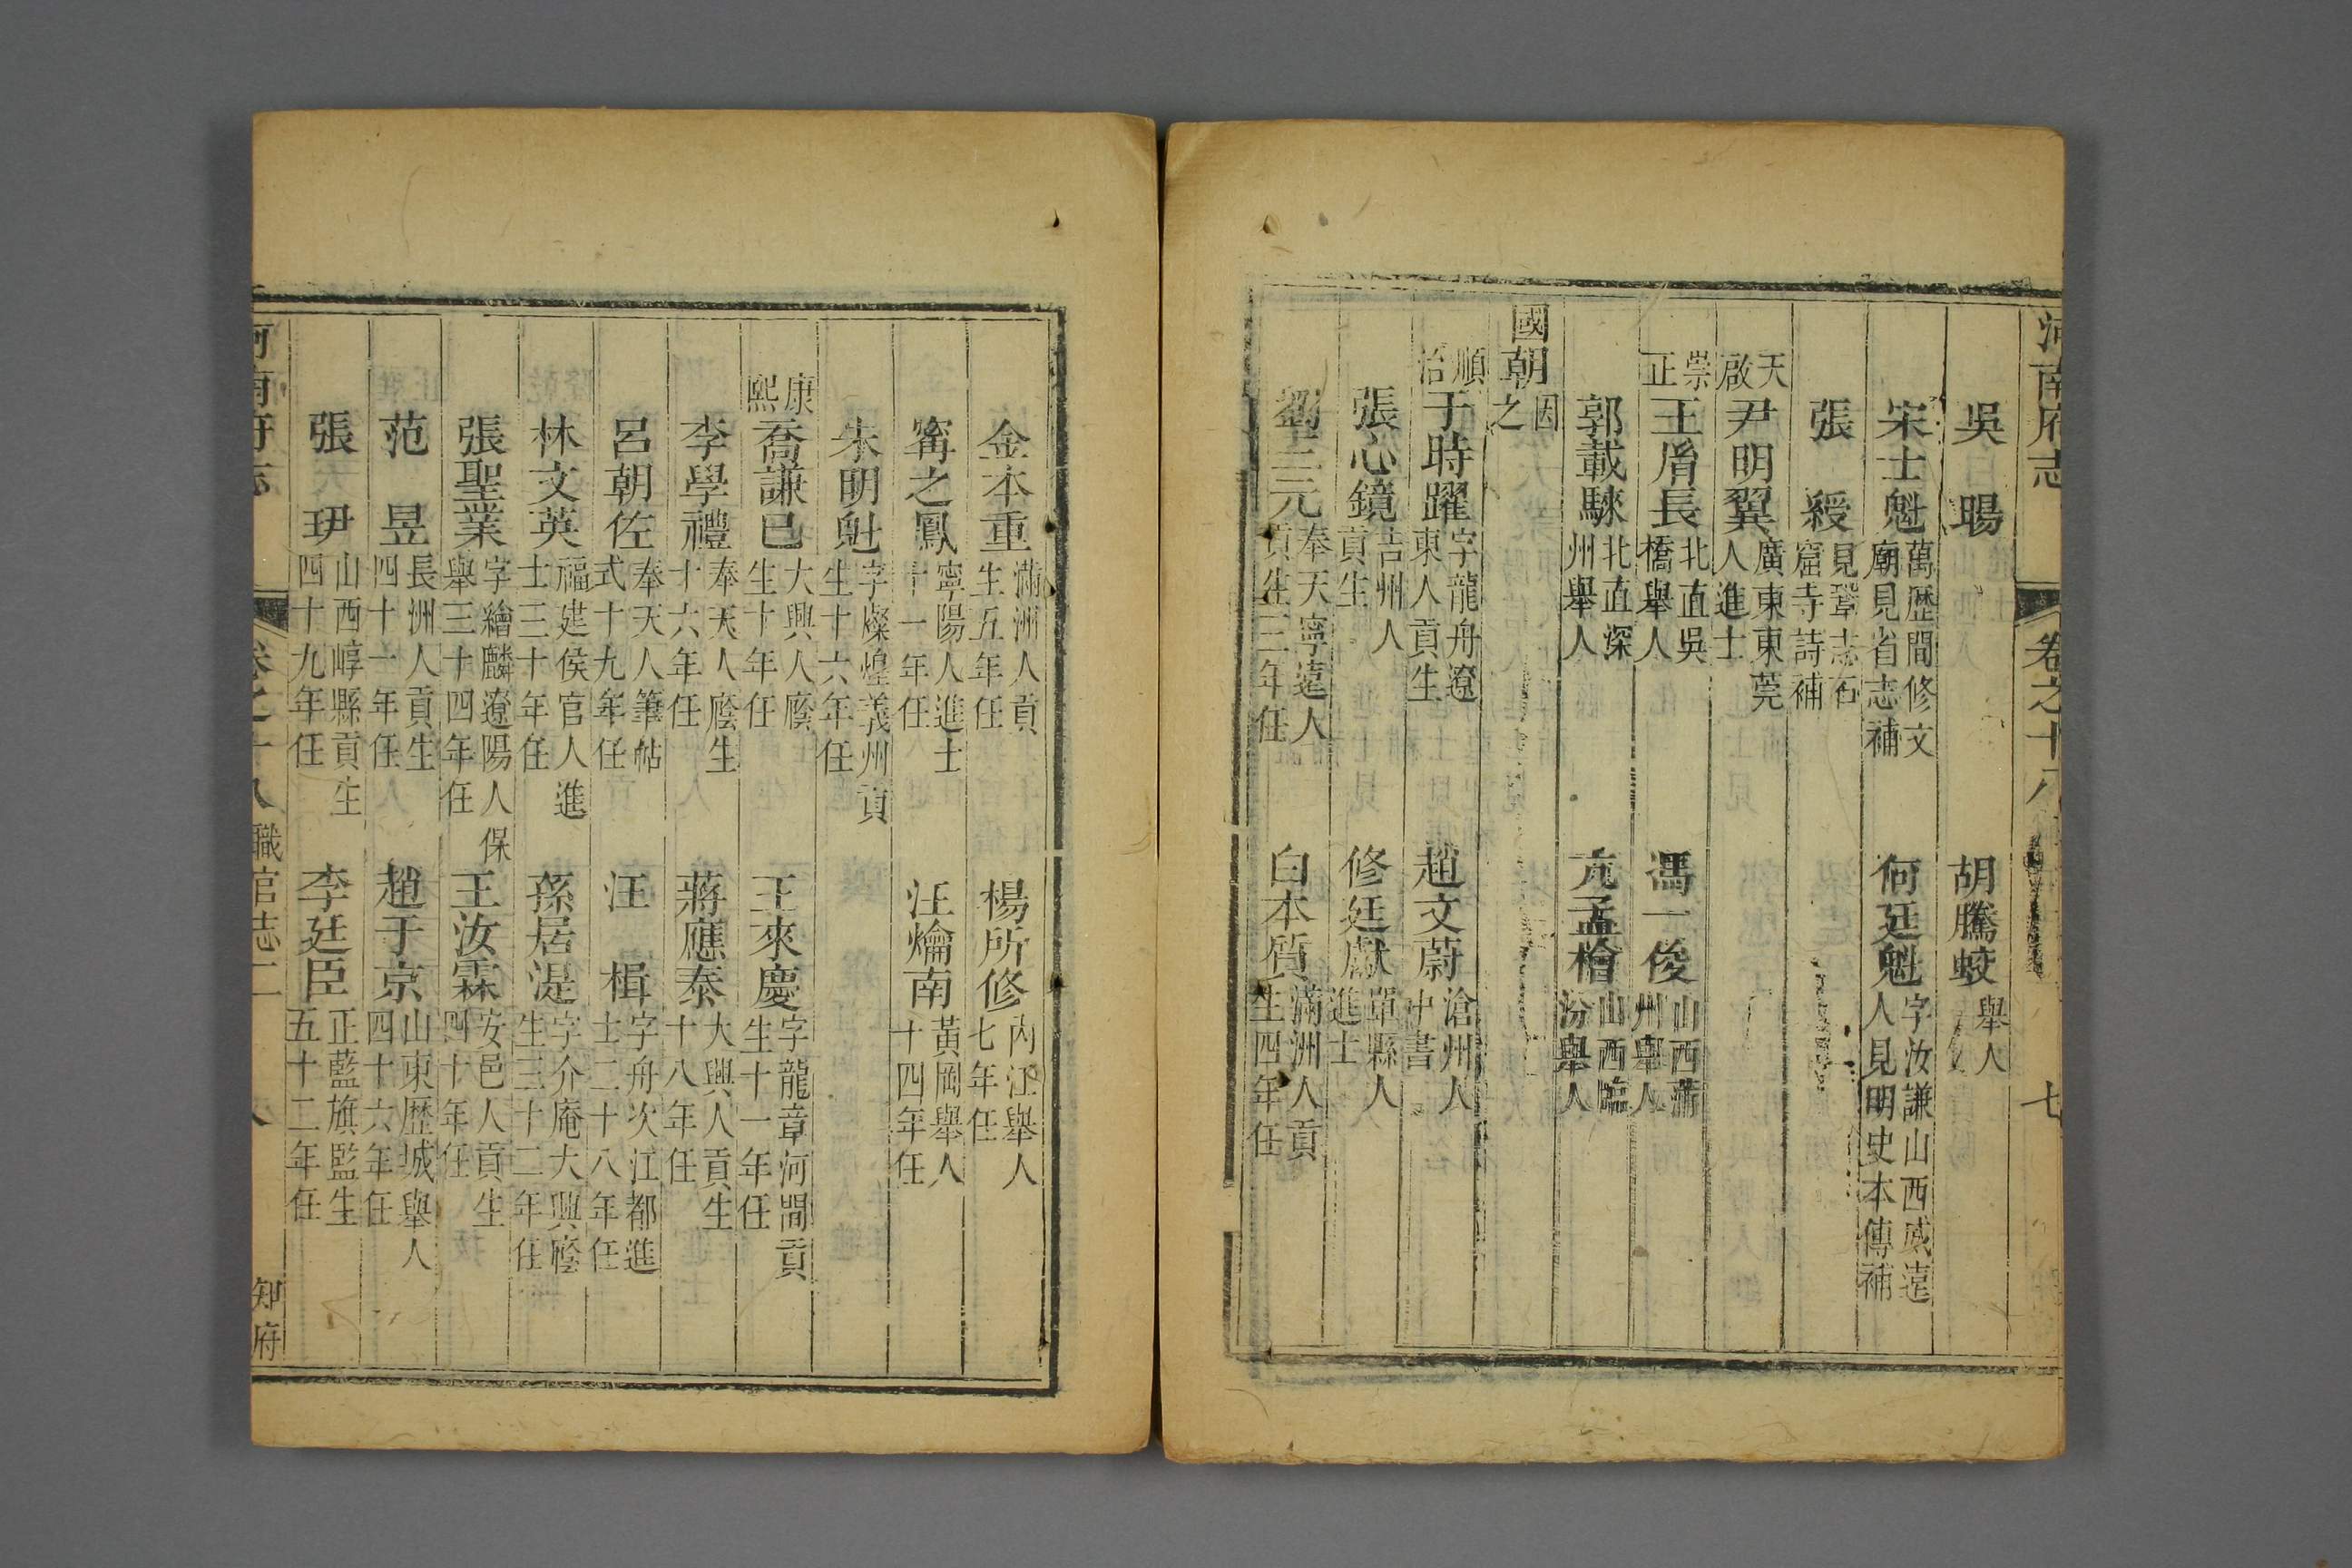 河南府志 卷之十八 七
吳 暘 胡騰蛟 舉人
宋士魁 萬歷間修文廟見省志補 何廷魁 字汝謙山西威遠人見明史本傳補
張 綬 見鞏志石窟寺詩補
天啟 尹明翼 廣東東莞人進士
崇正 王胤長 北直吳橋舉人 馮一俊 山西蒲州舉人
郭載駼 北直深州舉人 亢孟檜 山西臨汾舉人
國朝 因之
順治 于時躍 字龍舟遼東人貢生 趙文蔚 滄州人中書
張心鏡 吉州人貢生 修廷獻 單縣人進士
劉三元 奉天寧遠人貢生三年任 白本質 滿洲人貢生四年任
金本重 滿洲人貢生五年任 楊所修 內江舉人七年任
甯之鳳 寧陽人進士十一年任 汪爚南 黃岡舉人十四年任
朱明魁 字燦煌義州貢生十六年任
康熙 喬謙已 大興人廕生十年任 王來慶 字龍章河間貢生十一年任
李學禮 奉天人廕生十六年任 蔣應泰 大興人貢生十八年任
呂朝佐 奉天人筆帖式十九年任 汪 楫 字舟次江都進士二十八年任
林文英 福建侯官人進士三十年任 孫居湜 字介庵大興廕生三十二年任
張聖業 字繪麟遼陽人保舉三十四年任 王汝霖 安邑人貢生四十年任
范 昱 長洲人貢生四十一年任 趙于京 山東歷城舉人四十六年任
張 玬 山西崞縣貢生四十九年任 李廷臣 正藍旗監生五十二年任
河南府志 卷之十八 職官志二 八 知府